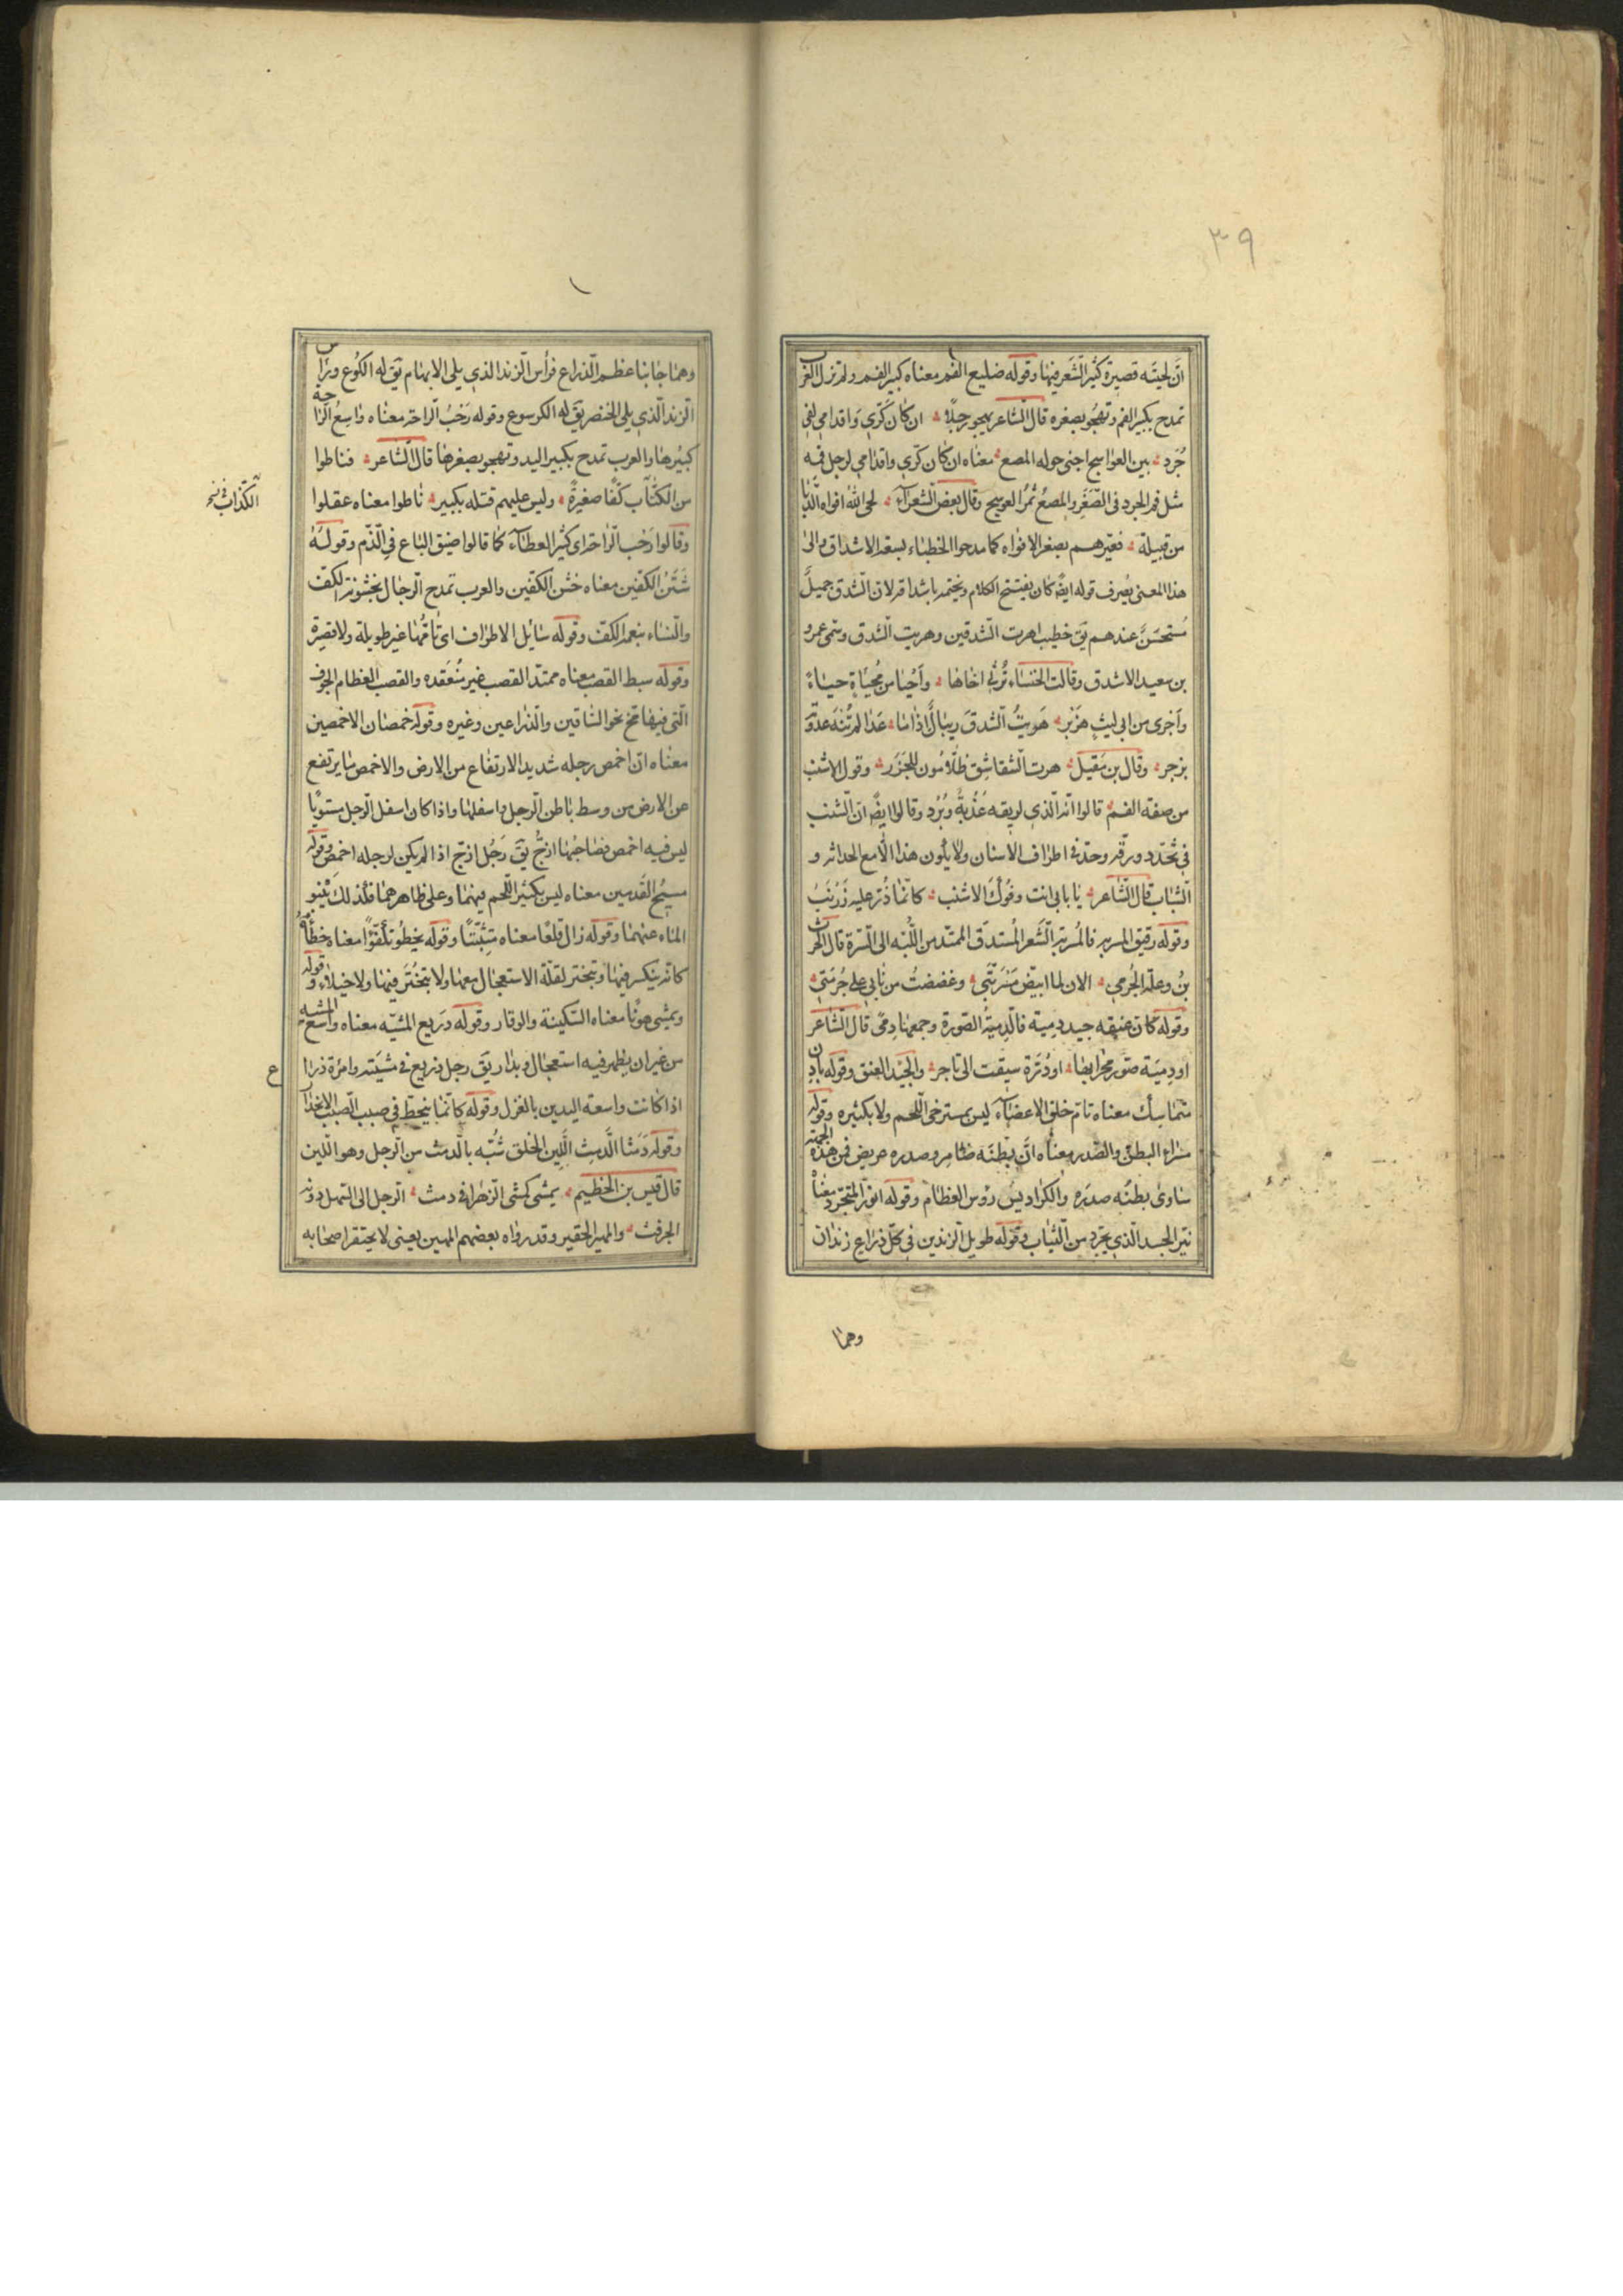 ٣٩
انّ لحيته قصيرة كثير الشّعر فيها وقوله ضليع الفم معناه كبير الفم ولم تزل العرب
تمدح بكبر الفم وتهجو بصغره قال الشّاعر يهجو رجلًا ان كان كرّي واقدامي لفي
جُرَد بين العواسج اجنى حوله المصع معناه ان كان كرّي واقدامي لرجل فمه
مثل فم الجرد في الصّغر والمصع ثمر العوسج وقال بعض الشعرآء لحى الله افواه الدّبا
من قبيلة فعيّرهم بصغر الافواه كما مدحوا الخطباء بسعة الاشداق والى
هذا المعنى يُصرف قوله ايضً كان يفتتح الكلام ويختمه باشداقه لان الشّدق جميلٌ
مُستحسَنٌ عندهم يق خطيب اهرت الشّدقين وهريت الشّدق وسمّى عمرو
بن سعيد الاشدق وقالت الخنساء تُرثي اخاها وأحيا من مُحيّاةٍ حياءً
وأجرى من ابي ليثٍ هزبر هَريتُ الشّدق ريبالٌ اذا ما عَدا لم تُنهَ عدوته
بزجر وقال بن مقبل هرت الشّقاشق ظلّامون للجُزر وقوله الاشنب
من صفة الفم قالوا انّه الّذي لريقه عُذُبةٌ وبُرْد وقالوا ايضً انّ الشّنب
في تحدّد ورقّه وحدّة في اطراف الاسنان ولا يكون هذا الّا مع الحداثه و
الشّباب قال الشّاعر يا بابي انت وفُوكَ الاشنب كانّما ذُرّ عليه زَرنَبُ
وقوله دقيق المسربه فالمُسربة الشّعر المُستدقّ الممتدّ من اللّبّه الى السّرة قال الحرث
بنُ وعلة الجُرمي الان لما ابيضّ مَسْرُبَتي وعضضتُ من نابي على جُرمتي
وقوله كان عنيقه جيد دمية فالدّميةُ الصّورة وجمعها دمًى قال الشّاعر
او دميَة صوّر محرابها او دُرّة سيقت الى تاجر والجيد العنق وقوله بادن
متماسك معناه تامّ خلق الاعضآء ليس بمسترخى اللّحم ولا بكثيره وقوله
سواء البطن والصّدر معناه انّ بطنَه ضامر وصدره عريض فمن هذه الجهة
ساوى بطنُه صدرَه والكراديسُ رؤس العظام وقوله انور المتجرّد معناه
نيّر الجسد الّذي تجرّد من الثّياب وقوله طويل الزندين في كلّ ذراع زندان
وهما
وهما جانبا عظم الذراع فرأس الزند الذي يلى الابهام يق له الكوُع ورأس
الزند الّذي يلى الخنصر يق له الكرسوع وقوله رَحْبُ الرّاحة معناه واسعُ الراحة
كبيرُها والعرب تمدح بكبير اليد وتهجو بصغرها قال الشّاعر فناطوا
من الكذّاب كفًّا صغيرةً وليس عليهم قتله بكبير ناطوا معناه عقلوا
الكذاب خ
وقالوا رَحْب الرّاحة اى كثير العطآء كما قالوا ضيق الباع في الذّم وقوله
شَثْنُ الكفّين معناه خشن الكفّين والعرب تمدح الرجال بخشونة الكفّ
والنّساء بنعمة الكفّ وقوله سائل الاطراف اى تامّها غير طويلة ولا قصيرة
وقوله سبط القصب معناه ممتدّ القصب غير مُنعَقده والقصب العظام الجوف
الّتى فيها مخ نحو السّاقين والذراعين وغيره وقوله خمصان الاخمصين
معناه انّ اخمص رجله شديد الارتفاع من الارض والاخمص ما يرتفع
عن الارض من وسط باطن الرجل واسفلها واذا كان اسفل الرجل مستويًا
ليس فيه اخمص فصاحبها ازجُّ يق رَجُل ازجّ اذا لم يكن لرجله اخمص وقوله
مسيحُ القدمين معناه ليس بكثير اللّحم فيهما وعلى ظاهرهما فلذلك يَنبو
المآء عنهما وقوله زال قلعًا معناه متثبّتًا وقوله يخطُو تكفّوًا معناه خطاه
كانّه يتكسر فيها وتبختر لقلّة الاستعجال معها ولا تبخُتَر فيها ولا خيلاء وقوله
ويمشى هونًا معناه السّكينة والوقار وقوله ذريع المشيه معناه واسع المشيه
من غير ان يظهر فيه استعجال وبدار يق رجل ذريع في مشيَته وامرءة ذراع
اذا كانت واسعة اليدين بالغزل وقوله كانّما ينحطّ في صبب الصّبب الانحدار
وقوله دَمثا الدَّمِثُ اللَّين الخلق شُبّه بالدّمث من الرمل وهو اللّين
قال قيس بن الخطيم يمشى كمشى الزّهراء في دمث الرمل الى السّهل دونه
الجرف والمهين الحقير وقد رواه بعضهم المهين يعنى لا يحتقر اصحابه